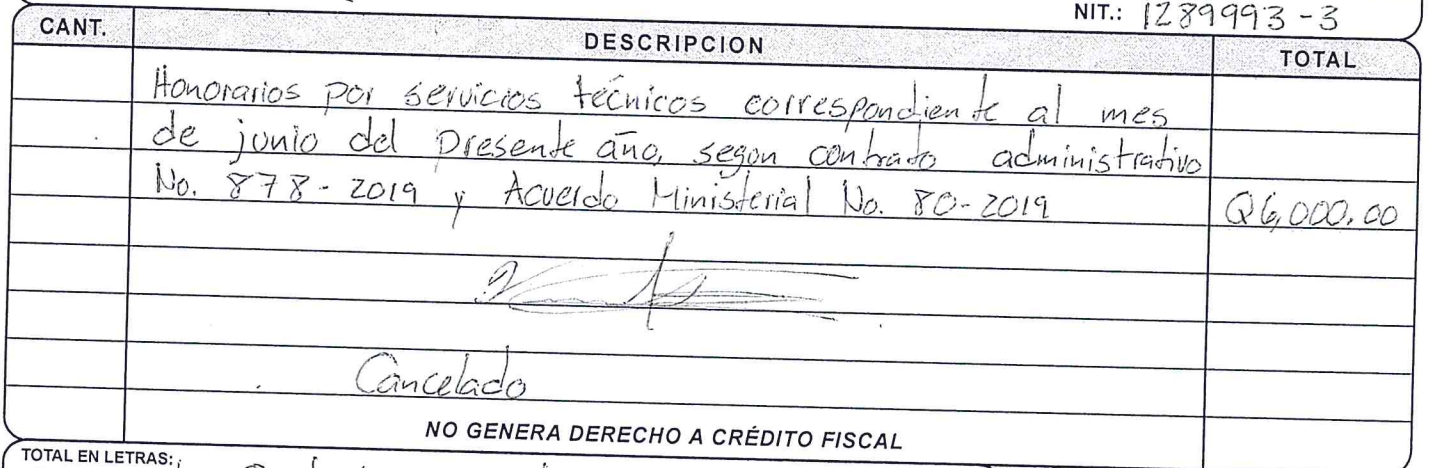 NIT.: 1289993-3
CANT. DESCRIPCION TOTAL
Honorarios por servicios técnicos correspondiente al mes
de junio del presente año, segun contrato administrativo
No. 878-2019 y Acuerdo Ministerial No. 80-2019 Q6,000.00
Cancelado
NO GENERA DERECHO A CRÉDITO FISCAL
TOTAL EN LETRAS: